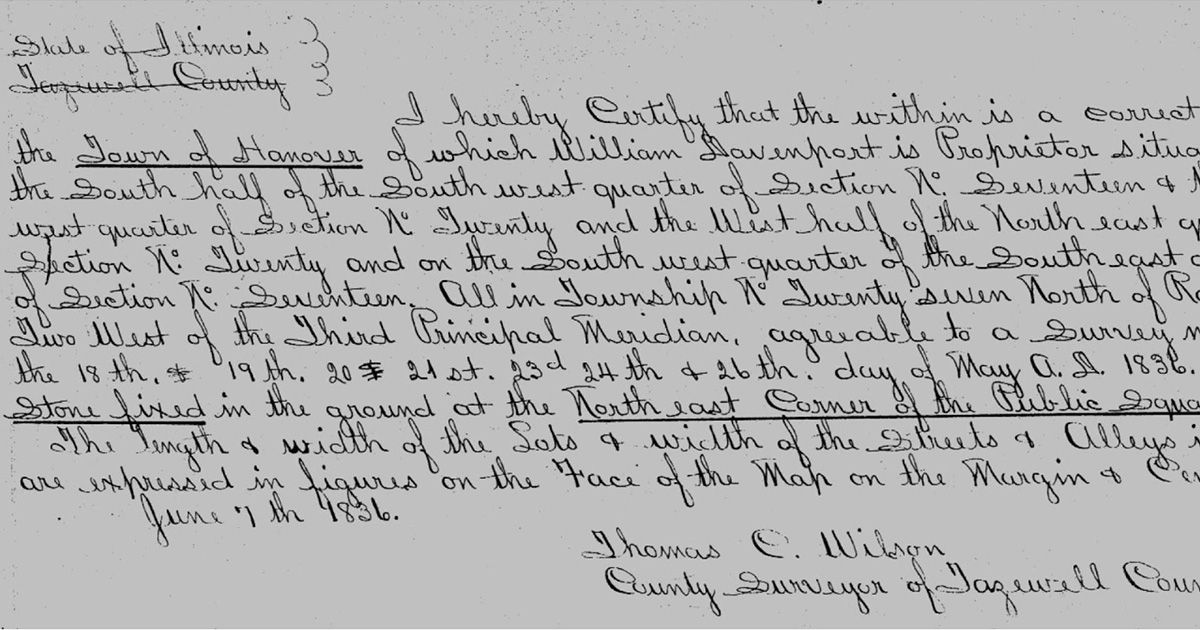 State of Illinois }
Tazewell County }
I hereby Certify that the within is a correct
the Town of Hanover of which William Davenport is Proprietor situa
the South half of the South west quarter of Section No. Seventeen & N
west quarter of Section No Twenty and the West half of the North east q
Section No. Twenty and on the South west quarter of the South east q
of Section No. Seventeen. All in Township No Twenty seven North of Ra
Two West of the Third Principal Meridian, agreeable to a Survey m
the 18th. & 19th. 20 & 21st. 23d 24th & 26th. day of May A.D. 1836.
Stone fixed in the ground at the North east Corner of the Public Squa
The length & width of the Lots & width of the Streets & Alleys i
are expressed in figures on the Face of the Map on the Margin & Cen
June 7th 1836.
Thomas C. Wilson
County Surveyor of Tazewell Coun